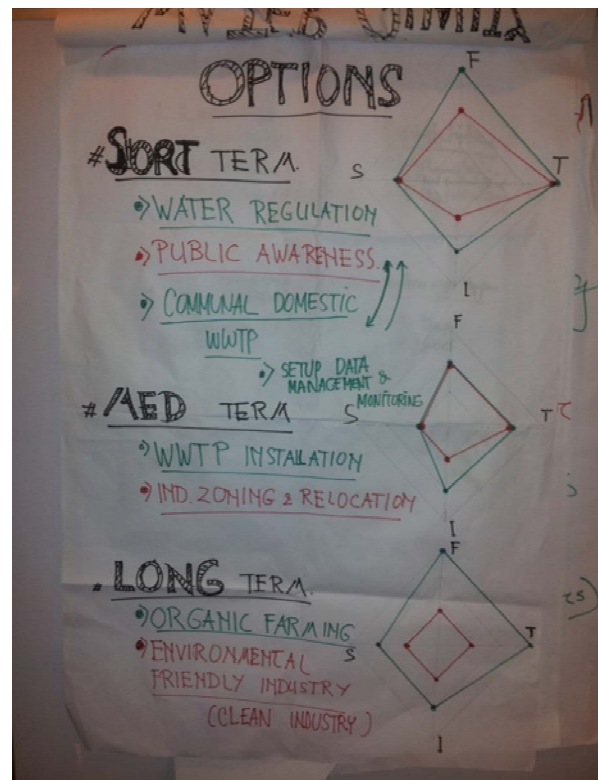 OPTIONS
# SORT TERM.
WATER REGULATION
PUBLIC AWARENESS.
COMMUNAL DOMESTIC
WWTP
SETUP DATA
MANAGEMENT &
MONITORING
# MED TERM
WWTP INSTALATION
IND. ZONING & RELOCATION
LONG TERM.
ORGANIC FARMING
ENVIRONMENTAL
FRIENDLY INDUSTRY
(CLEAN INDUSTRY)
F
S
T
I
F
S
T
I
F
S
T
I